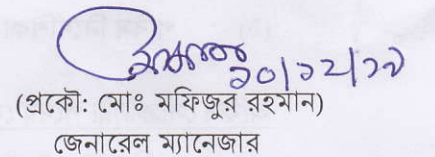 ১০/১২/১৭
(প্রকৌ: মোঃ মফিজুর রহমান)
জেনারেল ম্যানেজার